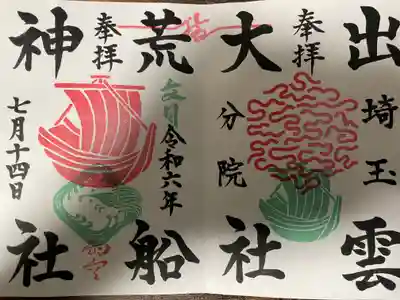 出雲
埼玉
奉拝
大社
分院
荒船
文月令和六年
奉拝
神社
七月十四日